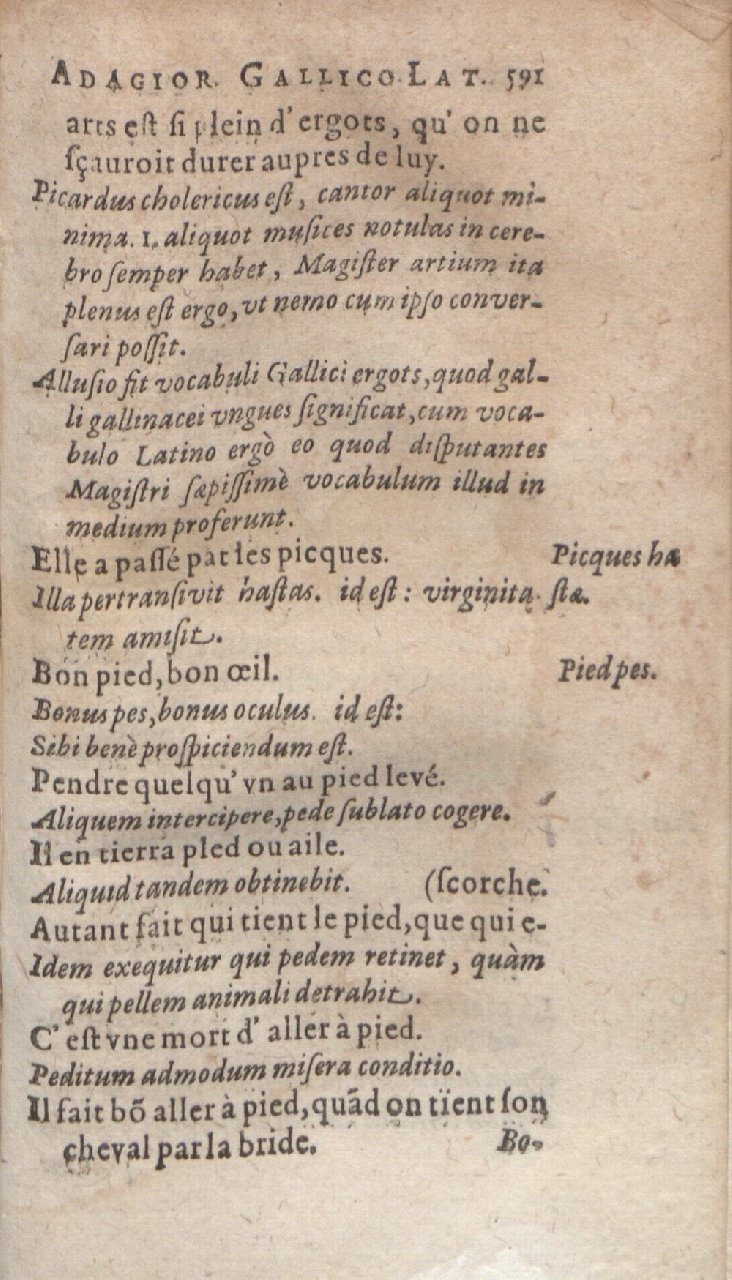 ADAGIOR. GALLICO-LAT. 591
arts est si plein d'ergots, qu'on ne
sçauroit durer aupres de luy.
Picardus cholericus est, cantor aliquot mi-
nima. 1. aliquot musices notulas in cere-
bro semper habet, Magister artium ita
plenus est ergo, vt nemo cum ipso conver-
sari possit.
Allusio fit vocabuli Gallici ergots, quod gal-
li gallinacei vngues significat, cum voca-
bulo Latino ergò eo quod disputantes
Magistri sæpissimè vocabulum illud in
medium proferunt.
Elle a passé par les picques. Picques hæ
Illa pertransivit hastas. id est: virginita- stæ.
tem amisit.
Bon pied, bon œil. Pied pes.
Bonus pes, bonus oculus. id est:
Sibi benè prospiciendum est.
Pendre quelqu'vn au pied levé.
Aliquem intercipere, pede sublato cogere.
Il en tierra pled ou aile.
Aliquid tandem obtinebit. (scorche.
Autant fait qui tient le pied, que qui e-
Idem exequitur qui pedem retinet, quàm
qui pellem animali detrahit.
C'est vne mort d'aller à pied.
Peditum admodum misera conditio.
Il fait bõ aller à pied, quãd on tient son
cheval par la bride. Bo-